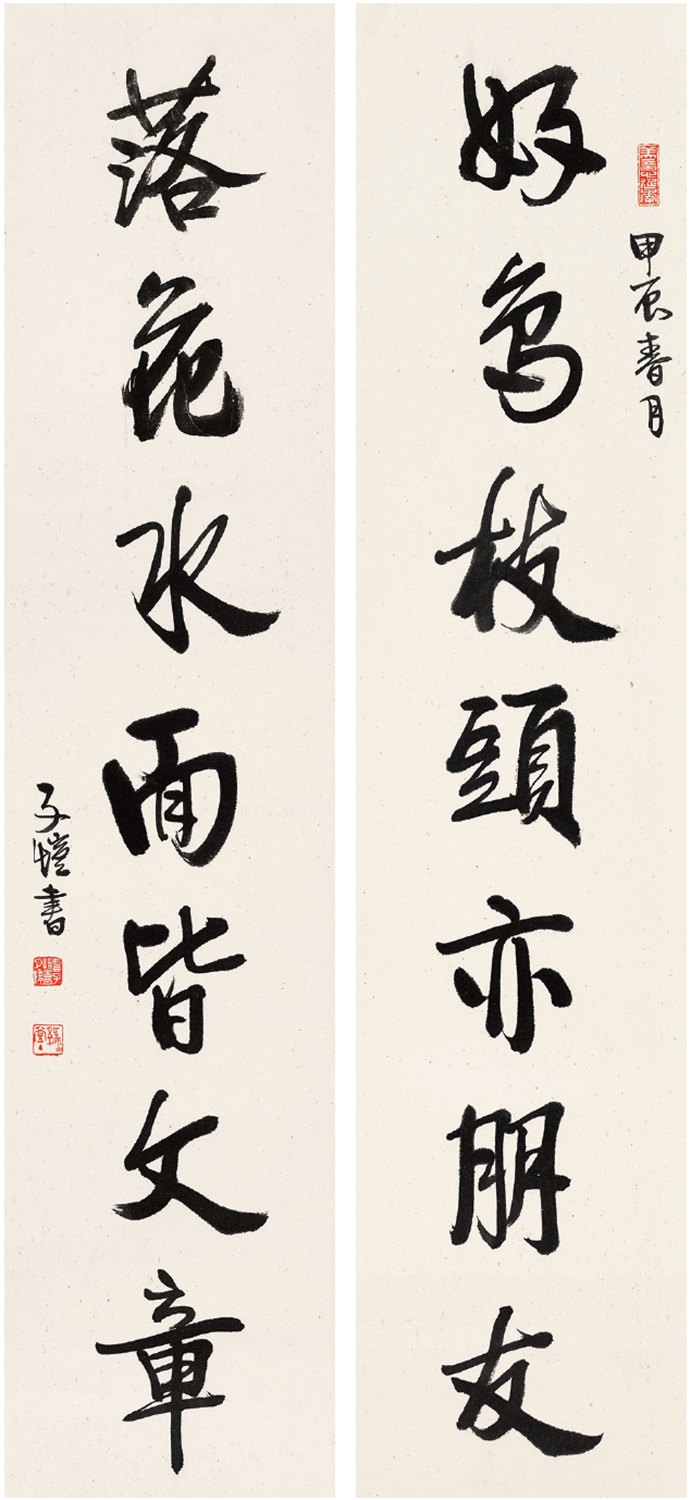 甲辰春月
好鳥枝頭亦朋友
落花水面皆文章
子愷書